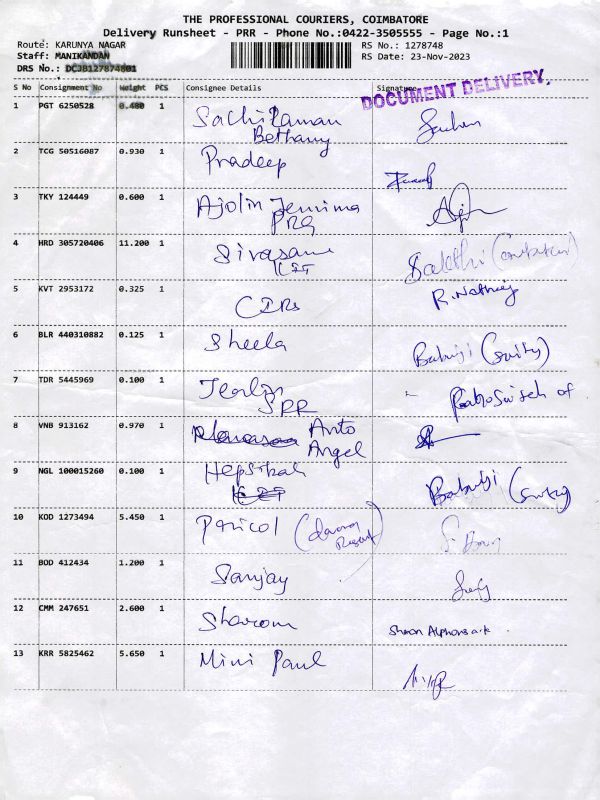 THE PROFESSIONAL COURIERS, COIMBATORE
Delivery Runsheet - PRR - Phone No.:0422-3505555 - Page No.:1
Route: KARUNYA NAGAR
RS No.: 1278748
Staff: MANIKANDAN
RS Date: 23-Nov-2023
DRS No.: DCJB127874801
S No Consignment No Weight PCS Consignee Details Signature
DOCUMENT DELIVERY.
1 PGT 6250528 0.480 1 Sachi Raman
Bethany
2 TCG 50516087 0.930 1 Pradeep
3 TKY 124449 0.600 1 Ajolin Jemima
PRG
4 HRD 305720406 11.200 1 Sivasami
Sakthi
5 KVT 2953172 0.325 1 R.Nathiej
6 BLR 440310882 0.125 1 Sheela Babuji
7 TDR 5445969 0.100 1
SRR
8 VNB 913162 0.970 1 Anto
Angel
9 NGL 100015260 0.100 1 Hepsibah Babuji
10 KOD 1273494 5.450 1 Paricol
11 BOD 412434 1.200 1 Sanjay
12 CMM 247651 2.600 1 Sharom Sharon
13 KRR 5825462 5.650 1 Mini Paul